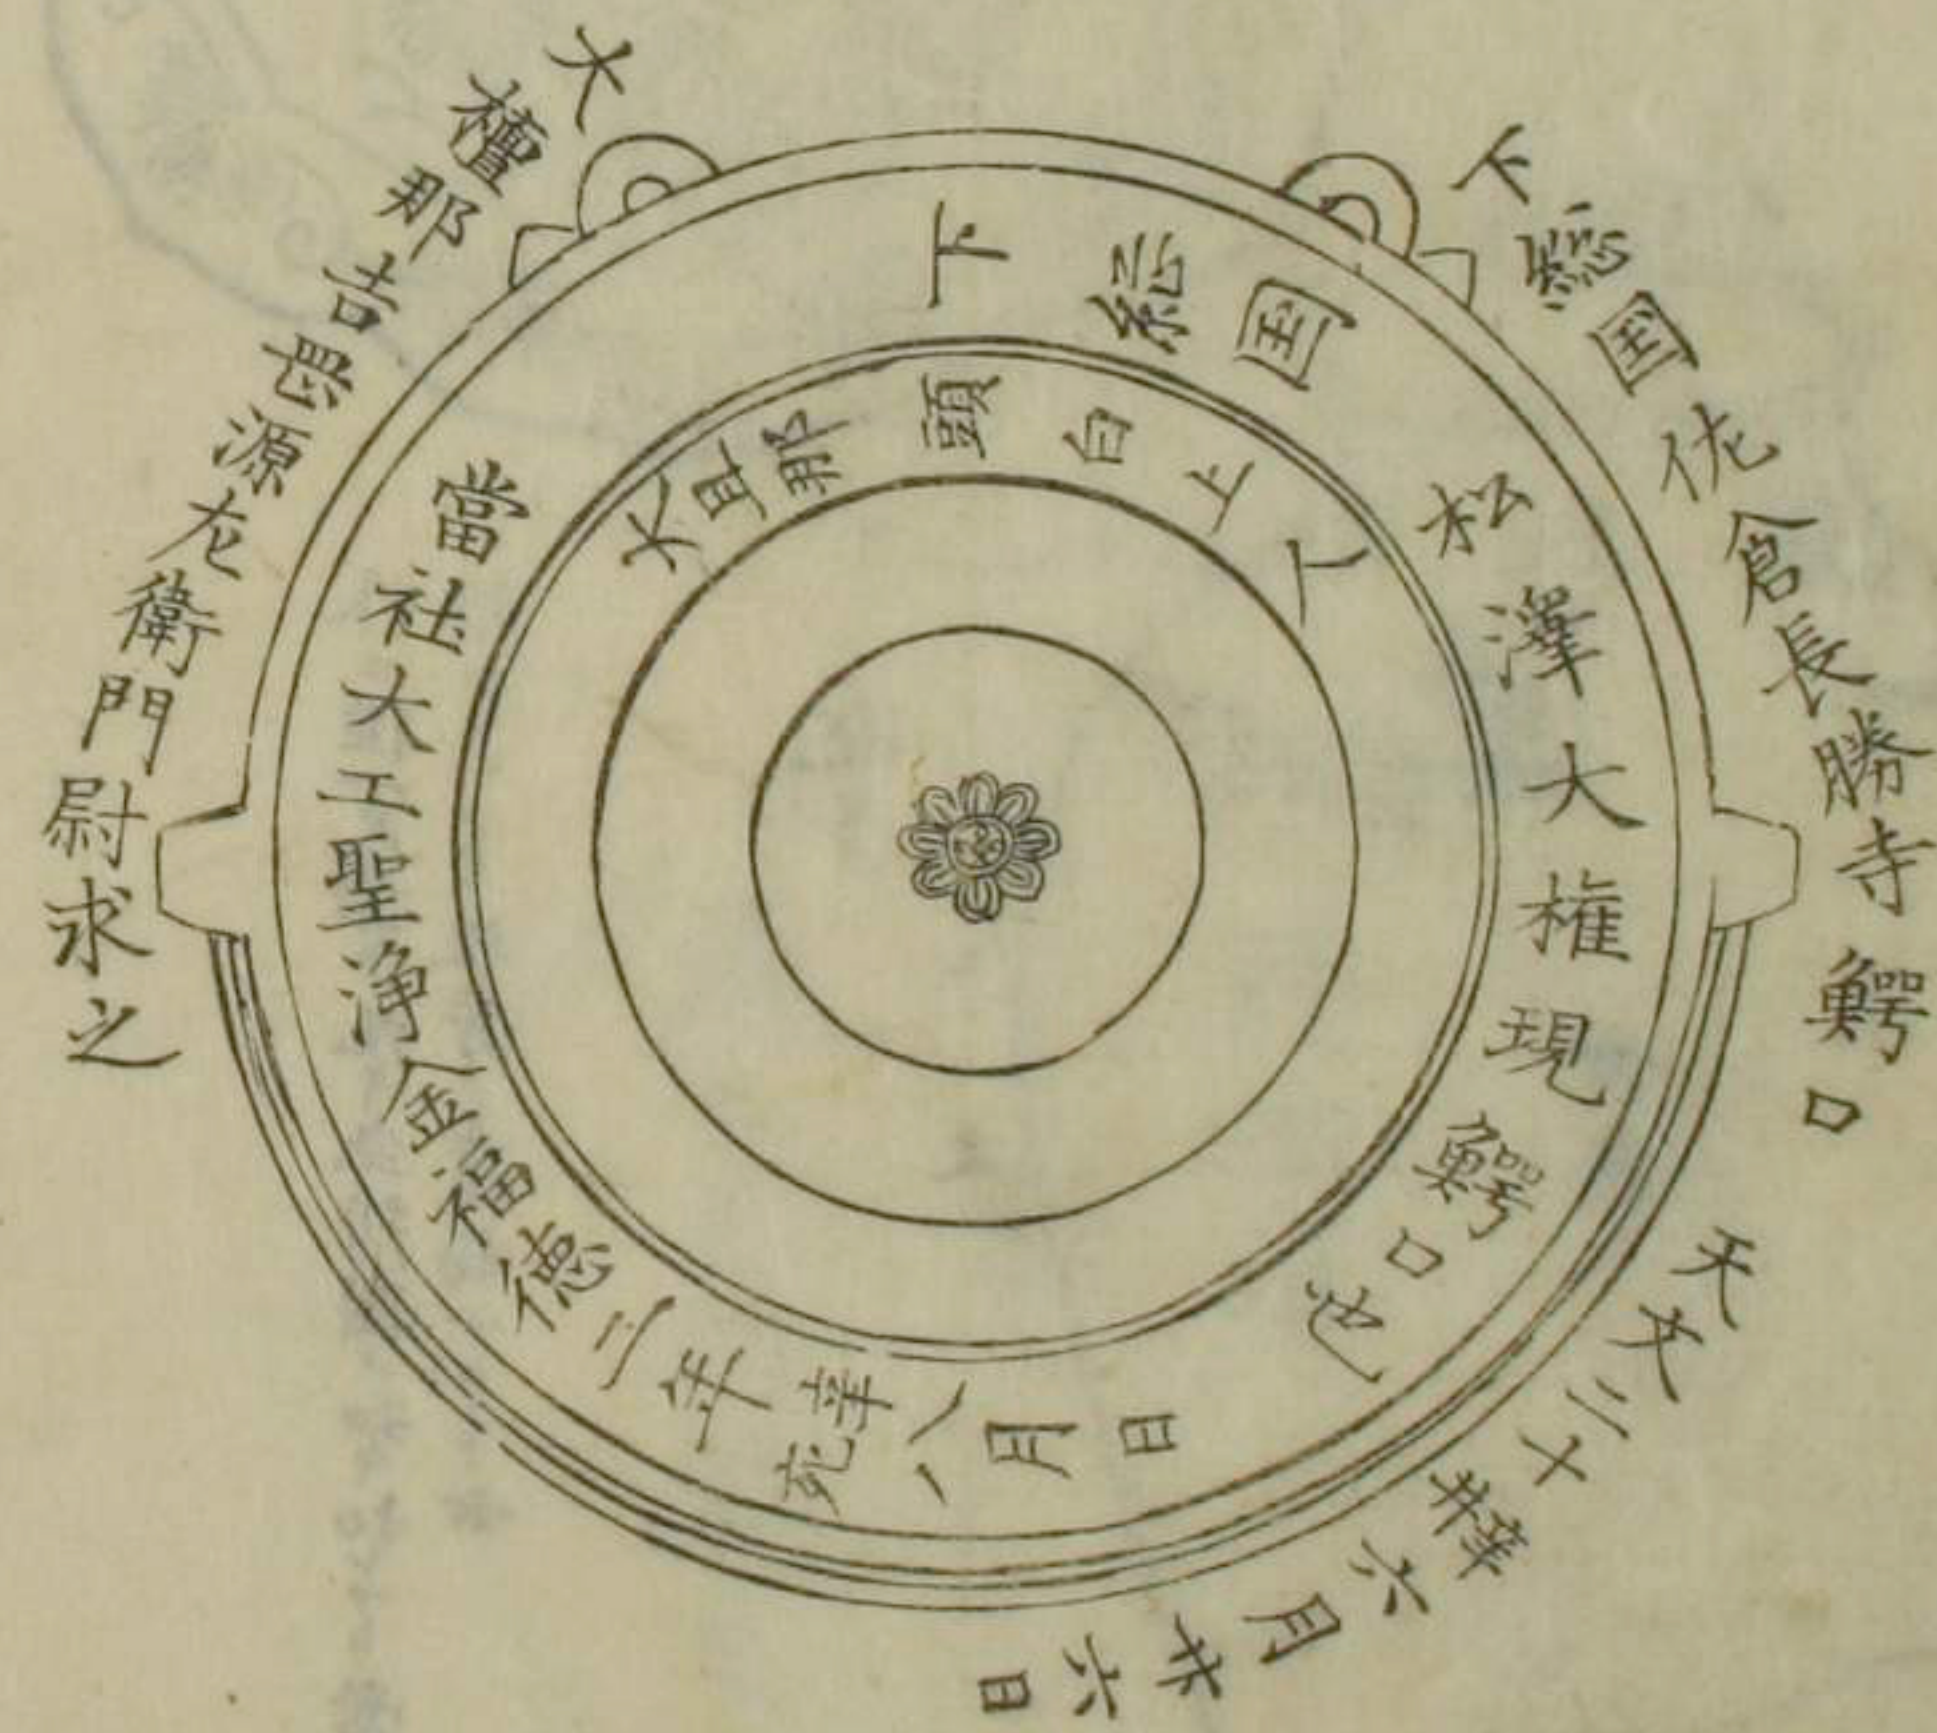 下総国佐倉長勝寺鰐口
天文二十辛亥六月廿六日
大檀那吉長源左衛門尉求之
下総国松澤大権現鰐口也
當社大工聖浄金福徳二年辛亥八月日
大旦那頭白上人